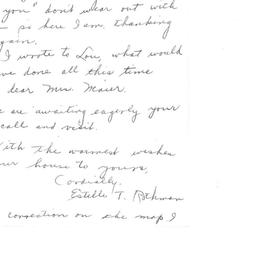 you" don't wear out with
so here I am thanking
again.
I wrote to Lou, what would
ve done all this time
dear Mrs. Maier.
e are awaiting eagerly your
call and visit.
With the warmest wishes
our house to yours,
Cordially,
Estelle T. Rothman
correction on the map I